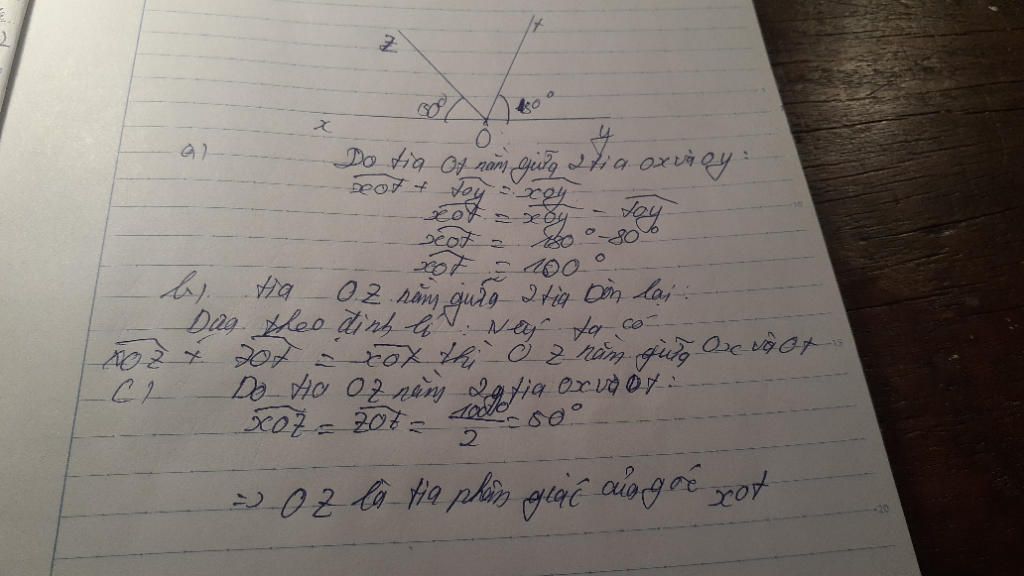 z t
50° 80°
x O y
a) Do tia Ot nằm giữa 2 tia ox và oy:
xot + toy = xoy
xot = xoy - toy
xot = 180° - 80°
xot = 100°
b). tia OZ nằm giữa 2 tia còn lại:
theo định lí: Nếu ta có
xoz + zot = xot thì OZ nằm giữa Ox và Ot
C) Do tia OZ nằm 2 tia ox và ot:
xoz = zot = 100° / 2 = 50°
=> OZ là tia phân giác của góc xot